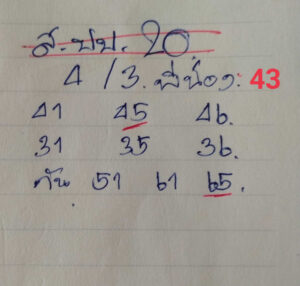 ส.ปป. 20.
4 / 3. พี่น้อง: 43
41 45 46.
31 35 36.
กัน 51 61 65.